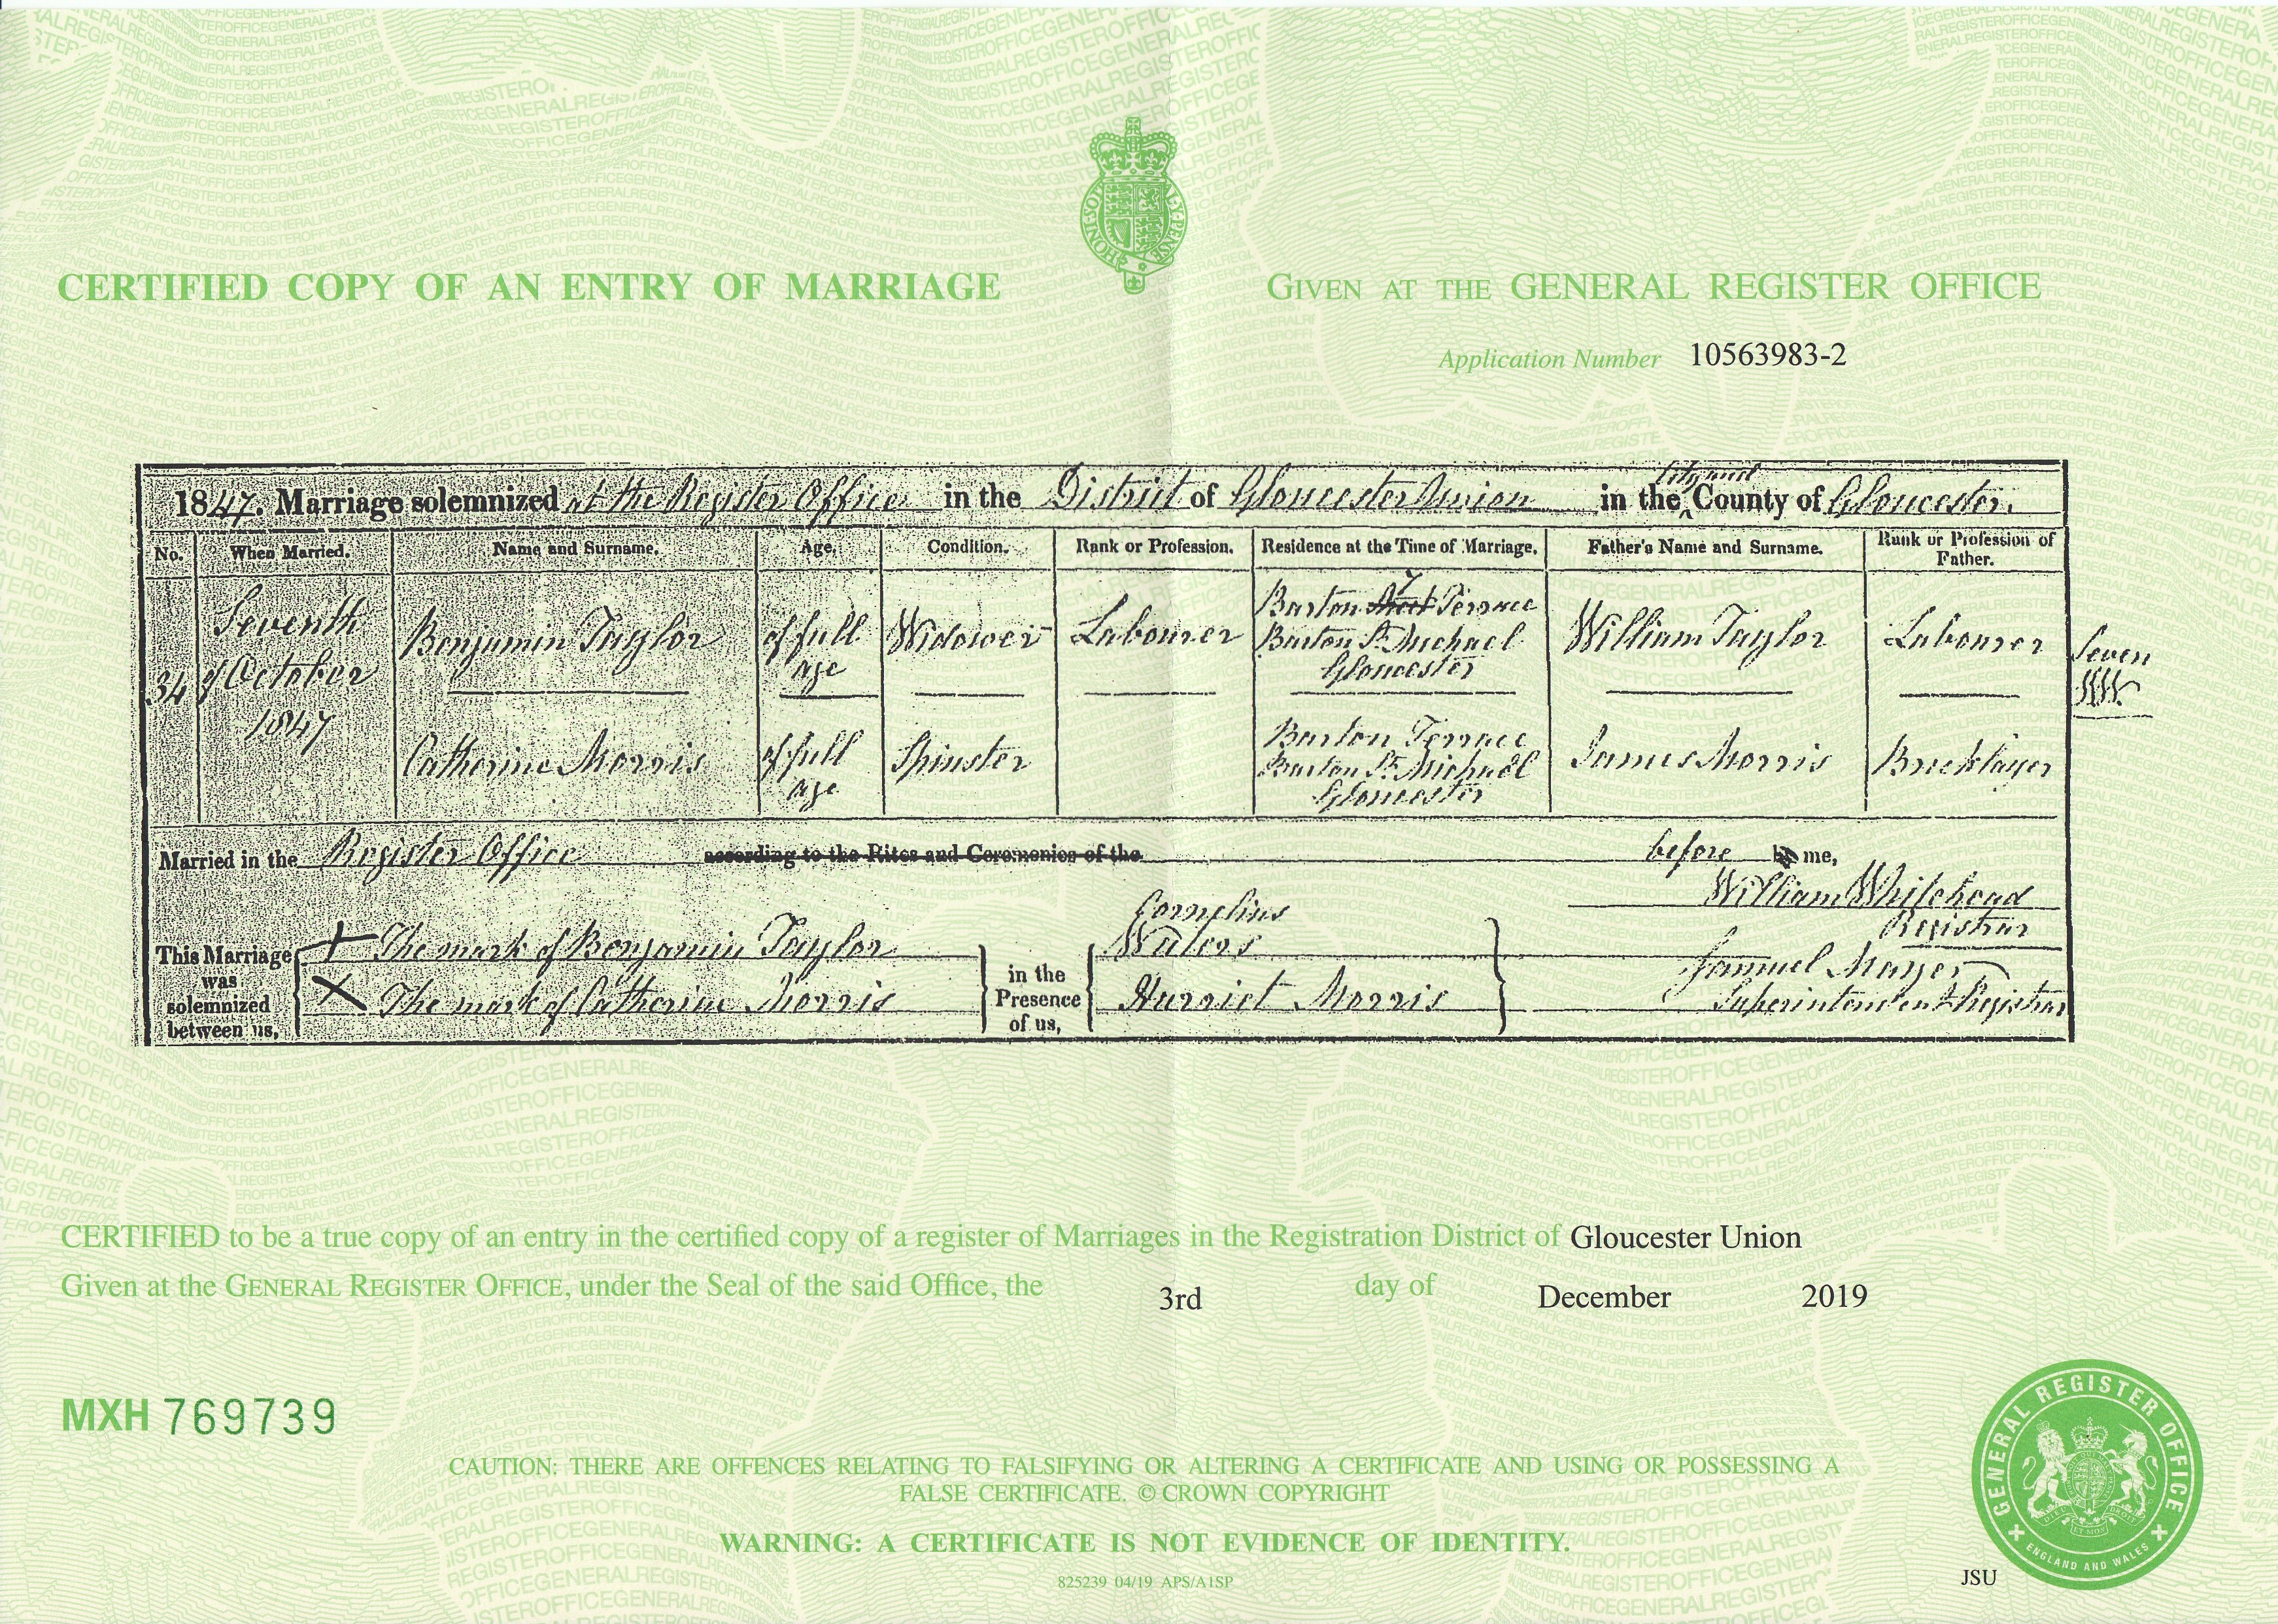 CERTIFIED COPY OF AN ENTRY OF MARRIAGE
GIVEN AT THE GENERAL REGISTER OFFICE
Application Number 10563983-2
1847. Marriage solemnized at the Register Office in the District of Gloucester Union in the City and County of Gloucester.
No. When Married. Name and Surname. Age. Condition. Rank or Profession. Residence at the Time of Marriage. Father's Name and Surname. Rank or Profession of Father.
34 Seventh of October 1847 Benjamin Taylor of full age Widower Labourer Barton Street Terrace Barton St. Michael Gloucester William Taylor Labourer
Seven
Catherine Morris of full age Spinster Barton Terrace Barton St. Michael Gloucester James Morris Bricklayer
Married in the Register Office according to the Rites and Ceremonies of the before by me,
William Whitehead
Registrar
This Marriage was solemnized between us, X The mark of Benjamin Taylor
X The mark of Catherine Morris
in the Presence of us, Cornelius Waters
Harriet Morris
Samuel Mayer
Superintendent Registrar
CERTIFIED to be a true copy of an entry in the certified copy of a register of Marriages in the Registration District of Gloucester Union
Given at the GENERAL REGISTER OFFICE, under the Seal of the said Office, the 3rd day of December 2019
MXH 769739
CAUTION: THERE ARE OFFENCES RELATING TO FALSIFYING OR ALTERING A CERTIFICATE AND USING OR POSSESSING A
FALSE CERTIFICATE. © CROWN COPYRIGHT
WARNING: A CERTIFICATE IS NOT EVIDENCE OF IDENTITY.
825239 04/19 APS/A1SP
JSU
GENERAL REGISTER OFFICE
ENGLAND AND WALES